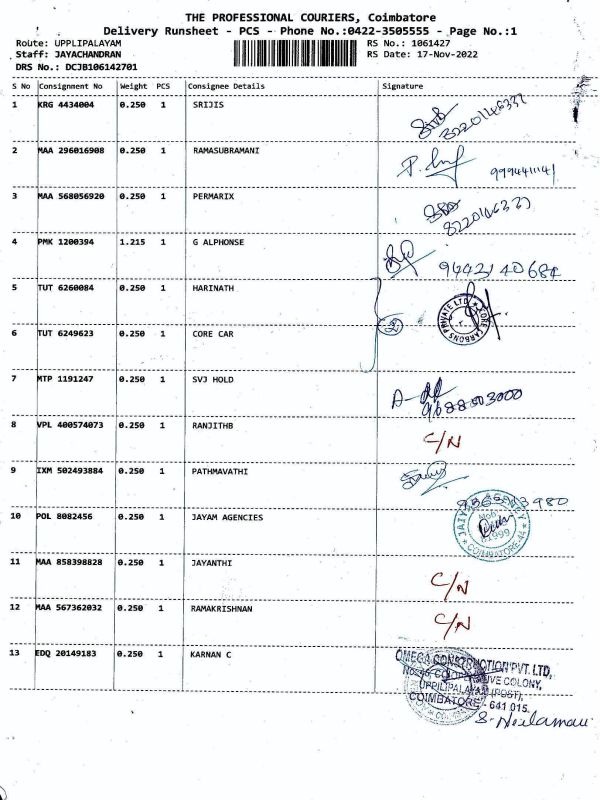 THE PROFESSIONAL COURIERS, Coimbatore
Delivery Runsheet - PCS - Phone No.:0422-3505555 - Page No.:1
Route: UPPLIPALAYAM RS No.: 1061427
Staff: JAYACHANDRAN RS Date: 17-Nov-2022
DRS No.: DCJB106142701
S No Consignment No Weight PCS Consignee Details Signature
1 KRG 4434004 0.250 1 SRIJIS
8220146337
2 MAA 296016908 0.250 1 RAMASUBRAMANI
3 MAA 568056920 0.250 1 PERMARIX
8220146337
4 PMK 1200394 1.215 1 G ALPHONSE
9442140684
5 TUT 6260084 0.250 1 HARINATH
CORE CARBONS PRIVATE LTD
6 TUT 6249623 0.250 1 CORE CAR
7 MTP 1191247 0.250 1 SVJ HOLD
9688803000
8 VPL 400574073 0.250 1 RANJITHB C/N
9 IXM 502493884 0.250 1 PATHMAVATHI
10 POL 8082456 0.250 1 JAYAM AGENCIES
AGENCY
COIMBATORE-44
11 MAA 858398828 0.250 1 JAYANTHI C/N
12 MAA 567362032 0.250 1 RAMAKRISHNAN C/N
13 EDQ 20149183 0.250 1 KARNAN C
OMEGA CONSTRUCTION PVT. LTD,
COLONY,
UPPILIPALAYAM (POST),
COIMBATORE - 641 015.